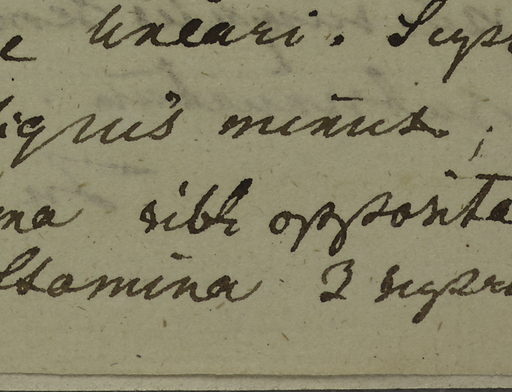 e lineari. Sup
liquis minus.,
na sibi opposita
Stamina 3 supr